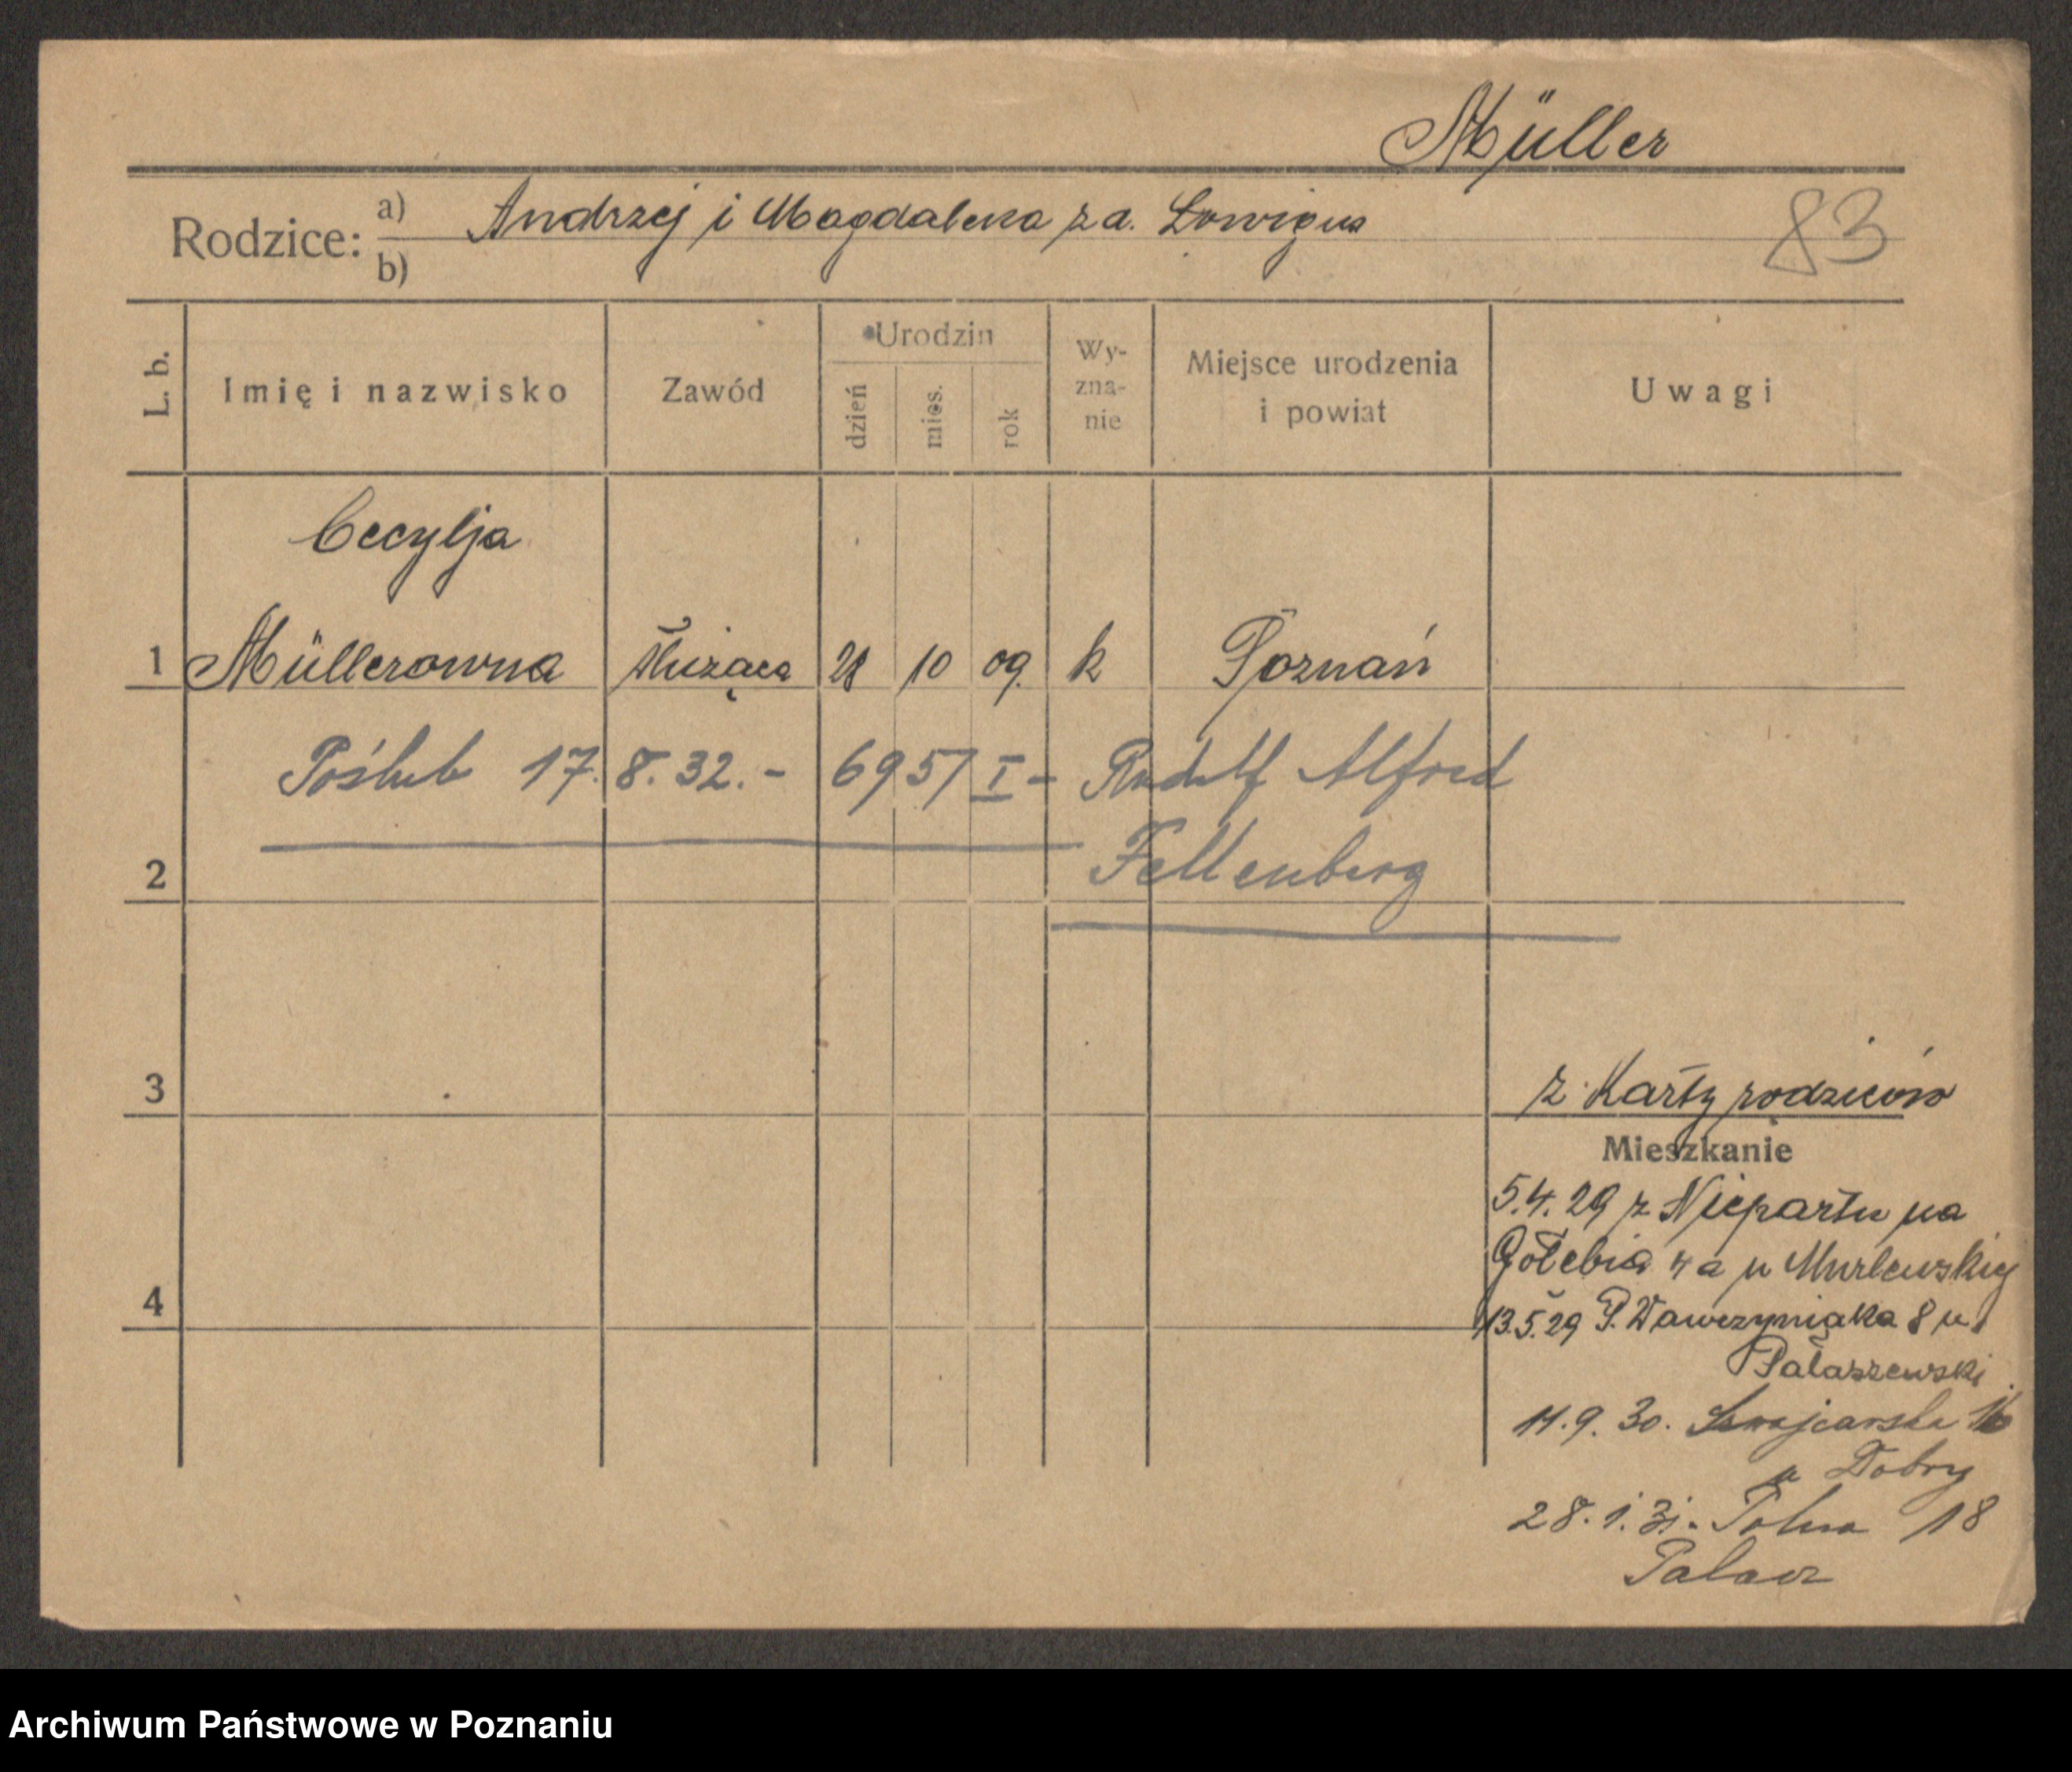 Müller
Rodzice: a) Andrzej i Magdalena za.
b)
83
L. b.
Imię i nazwisko
Zawód
Urodzin
dzień
mies.
rok
Wy-
zna-
nie
Miejsce urodzenia
i powiat
Uwagi
Cecylja
1 Müllerowna służąca 28 10 09. k Poznań
Poślub 17. 8. 32. - 6951 I - Rudolf Alfred
2 Fellenberg
3
z Karty rodziców
Mieszkanie
5.4.29 z Niepartu na
Gołebia 4a u Murlewskiej
4
13.5.29 P. Wawrzyniaka 8 u
Pałaszewski
11.9.30. Szwajcarska
u Dobry
28.1.31. Polna 18
Palacz
Archiwum Państwowe w Poznaniu